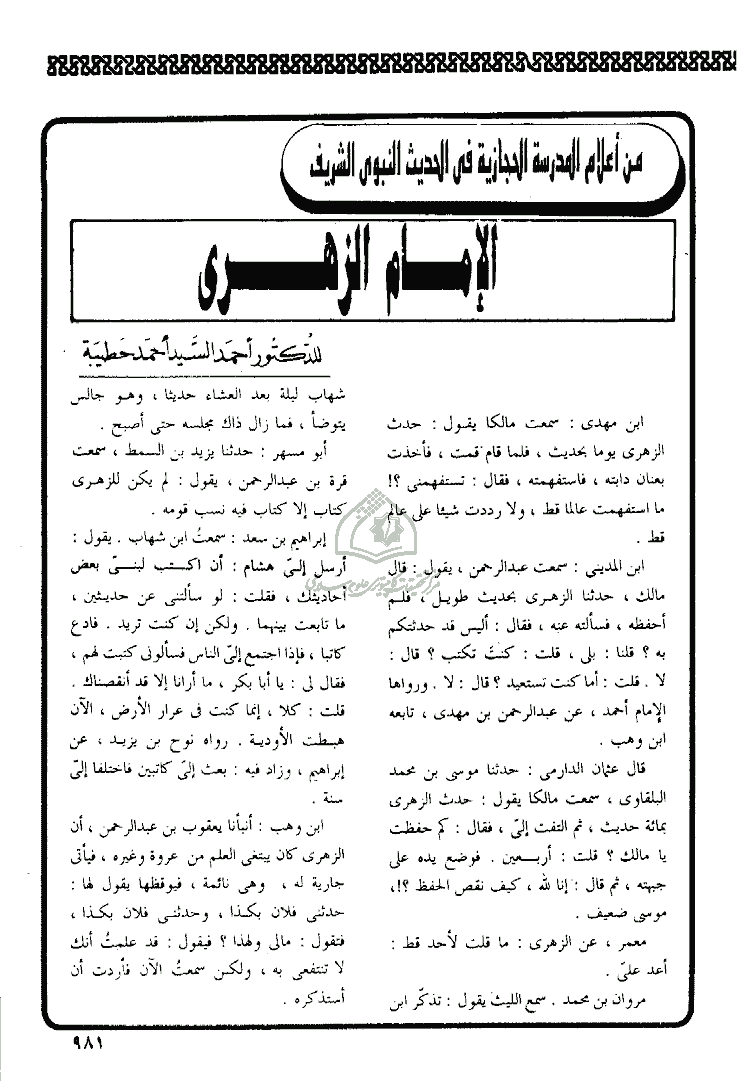 من أعلام المدرسة الحجازية فى الحديث النبوى الشريف
الإمام الزهرى
للدكتور أحمد السيد أحمد حطيبة
ابن مهدى : سمعت مالكا يقول : حدث
الزهرى يوما بحديث ، فلما قام قمت ، فأخذت
بعنان دابته ، فاستفهمته ، فقال : تستفهمنى ؟!
ما استفهمت عالما قط ، ولا رددت شيئا على عالم
قط .
ابن المديني : سمعت عبدالرحمن ، يقول : قال
مالك ، حدثنا الزهرى بحديث طويل ، فلم
أحفظه ، فسألته عنه ، فقال : أليس قد حدثتكم
به ؟ قلنا : بلى ، قلت : كنتَ تكتب ؟ قال :
لا . قلت : أما كنت تستعيد ؟ قال : لا . ورواها
الإمام أحمد ، عن عبدالرحمن بن مهدى ، تابعه
ابن وهب .
قال عثمان الدارمى : حدثنا موسى بن محمد
البلقاوى ، سمعت مالكا يقول : حدث الزهرى
بمائة حديث ، ثم التفت إلىّ ، فقال : كم حفظت
يا مالك ؟ قلت : أربعين . فوضع يده على
جبهته ، ثم قال : إنا لله ، كيف نقص الحفظ ؟!،
موسى ضعيف .
معمر ، عن الزهرى : ما قلت لأحد قط :
أعد علىّ .
مروان بن محمد . سمع الليث يقول : تذكّر ابن
شهاب ليلة بعد العشاء حديثا ، وهو جالس
يتوضأ ، فما زال ذاك مجلسه حتى أصبح .
أبو مسهر : حدثنا يزيد بن السمط ، سمعت
قرة بن عبدالرحمن ، يقول : لم يكن للزهرى
كتاب إلا كتاب فيه نسب قومه .
إبراهيم بن سعد : سمعتُ ابن شهاب . يقول :
أرسل إلىّ هشام : أن اكتب لبنىّ بعض
أحاديثك ، فقلت : لو سألتنى عن حديثين ،
ما تابعت بينهما . ولكن إن كنت تريد . فادع
كاتبا ، فإذا اجتمع إلىّ الناس فسألونى كتبت لهم ،
فقال لى : يا أبا بكر ، ما أرانا إلا قد أنقصناك .
قلت : كلا ، إنما كنت فى عرار الأرض ، الآن
هبطت الأودية . رواه نوح بن يزيد ، عن
إبراهيم ، وزاد فيه : بعث إلىّ كاتبين فاختلفا إلىّ
سنة .
ابن وهب : أنبأنا يعقوب بن عبدالرحمن ، أن
الزهرى كان يبتغى العلم من عروة وغيره ، فيأتى
جارية له ، وهى نائمة ، فيوقظها يقول لها :
حدثنى فلان بكذا ، وحدثنى فلان بكذا ،
فتقول : مالى ولهذا ؟ فيقول : قد علمتُ أنك
لا تنتفعى به ، ولكن سمعتُ الآن فأردت أن
أستذكره .
٩٨١